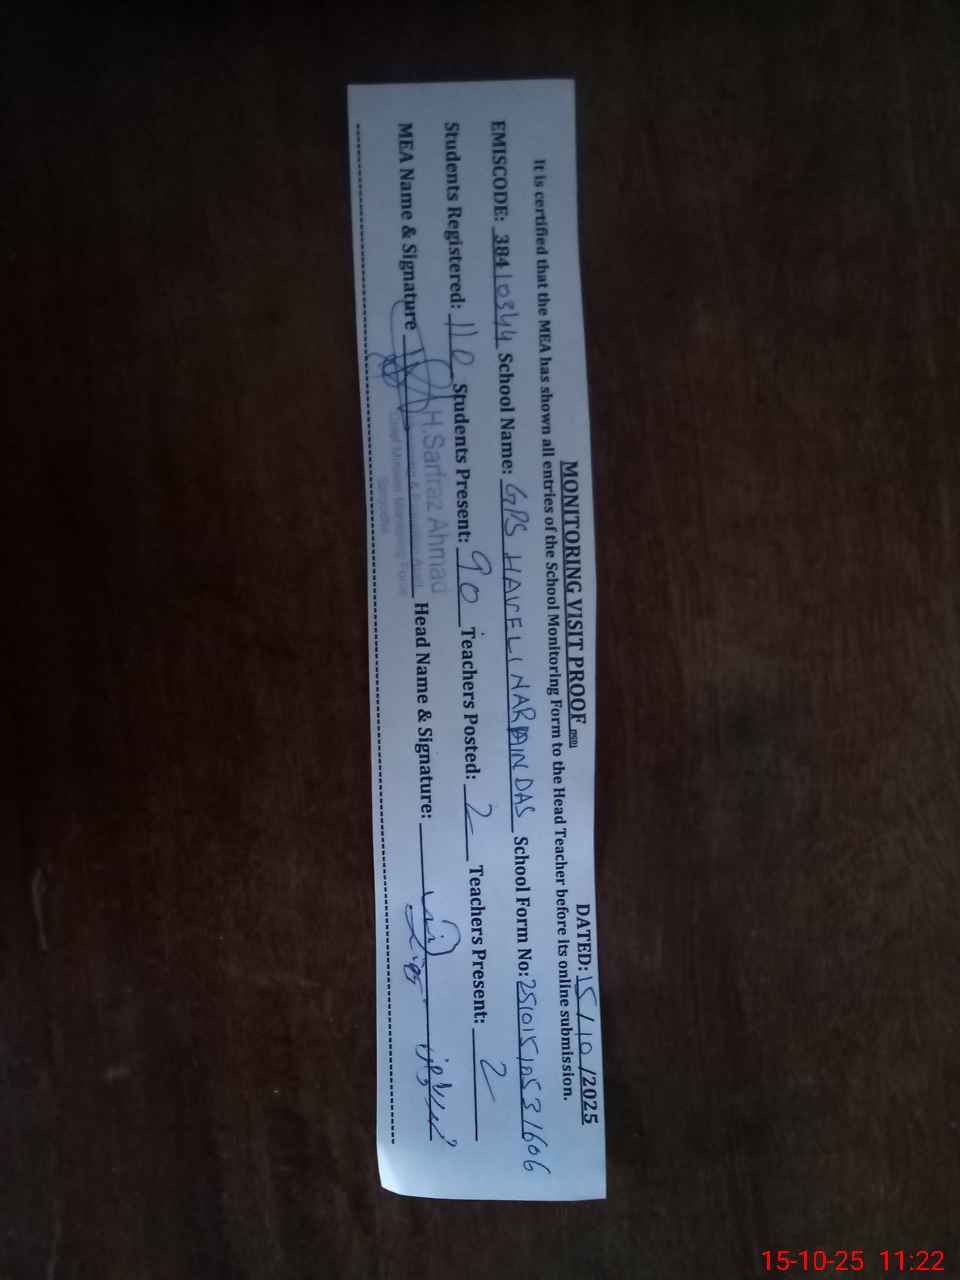 MONITORING VISIT PROOF (PSD)
DATED: 15/10/2025
It is certified that the MEA has shown all entries of the School Monitoring Form to the Head Teacher before its online submission.
EMISCODE: 38410344 School Name: GPS HAVELI NARAIN DAS School Form No: 25101510531606
Students Registered: 110 Students Present: 90 Teachers Posted: 2 Teachers Present: 2
MEA Name & Signature Head Name & Signature:
H.Sarfraz Ahmad
Monitoring Force
Sargodha
15-10-25 11:22